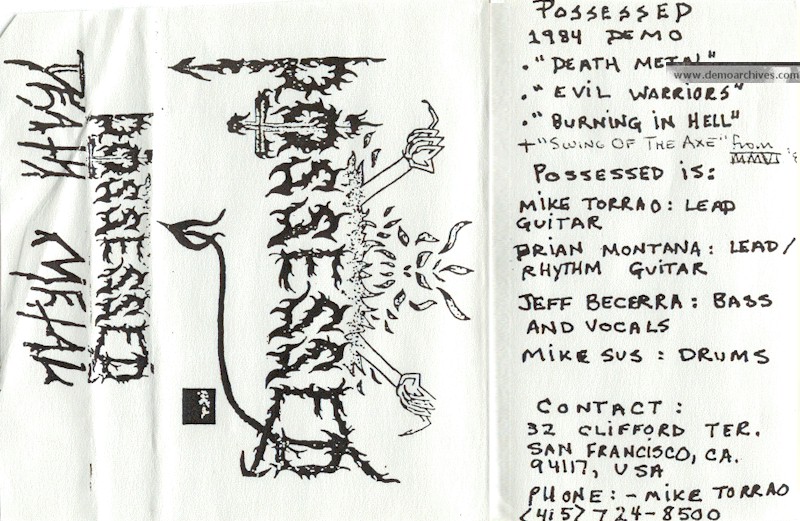 DEATH METAL
POSSESSED
POSSESSED
POSSESSED
1984 DEMO
."DEATH METAL"
www.demoarchives.com
." EVIL WARRIORS"
." BURNING IN HELL"
+"SWING OF THE AXE" from
MMVI
POSSESSED IS:
MIKE TORRAO: LEAD
GUITAR
BRIAN MONTANA: LEAD/
RHYTHM GUITAR
JEFF BECERRA: BASS
AND VOCALS
MIKE SUS: DRUMS
CONTACT:
32 CLIFFORD TER.
SAN FRANCISCO, CA.
94117, USA
PHONE:- MIKE TORRAO
(415) 724-8500